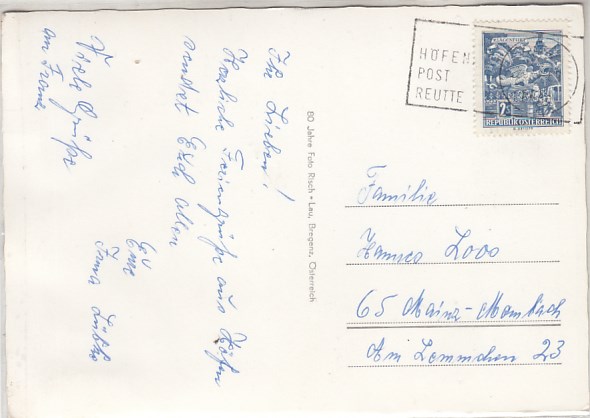 Ihr Lieben!
Herzliche Feriengrüße aus Höfen
sendet Euch allen
Eure
Irma
Viele Grüße
an Franz
80 Jahre Foto Risch-Lau, Bregenz, Österreich
HÖFEN
POST
REUTTE
KLAGENFURT
2S
REPUBLIK ÖSTERREICH
Familie
Loos
65 Mainz-Mombach
Am Lemmchen 23